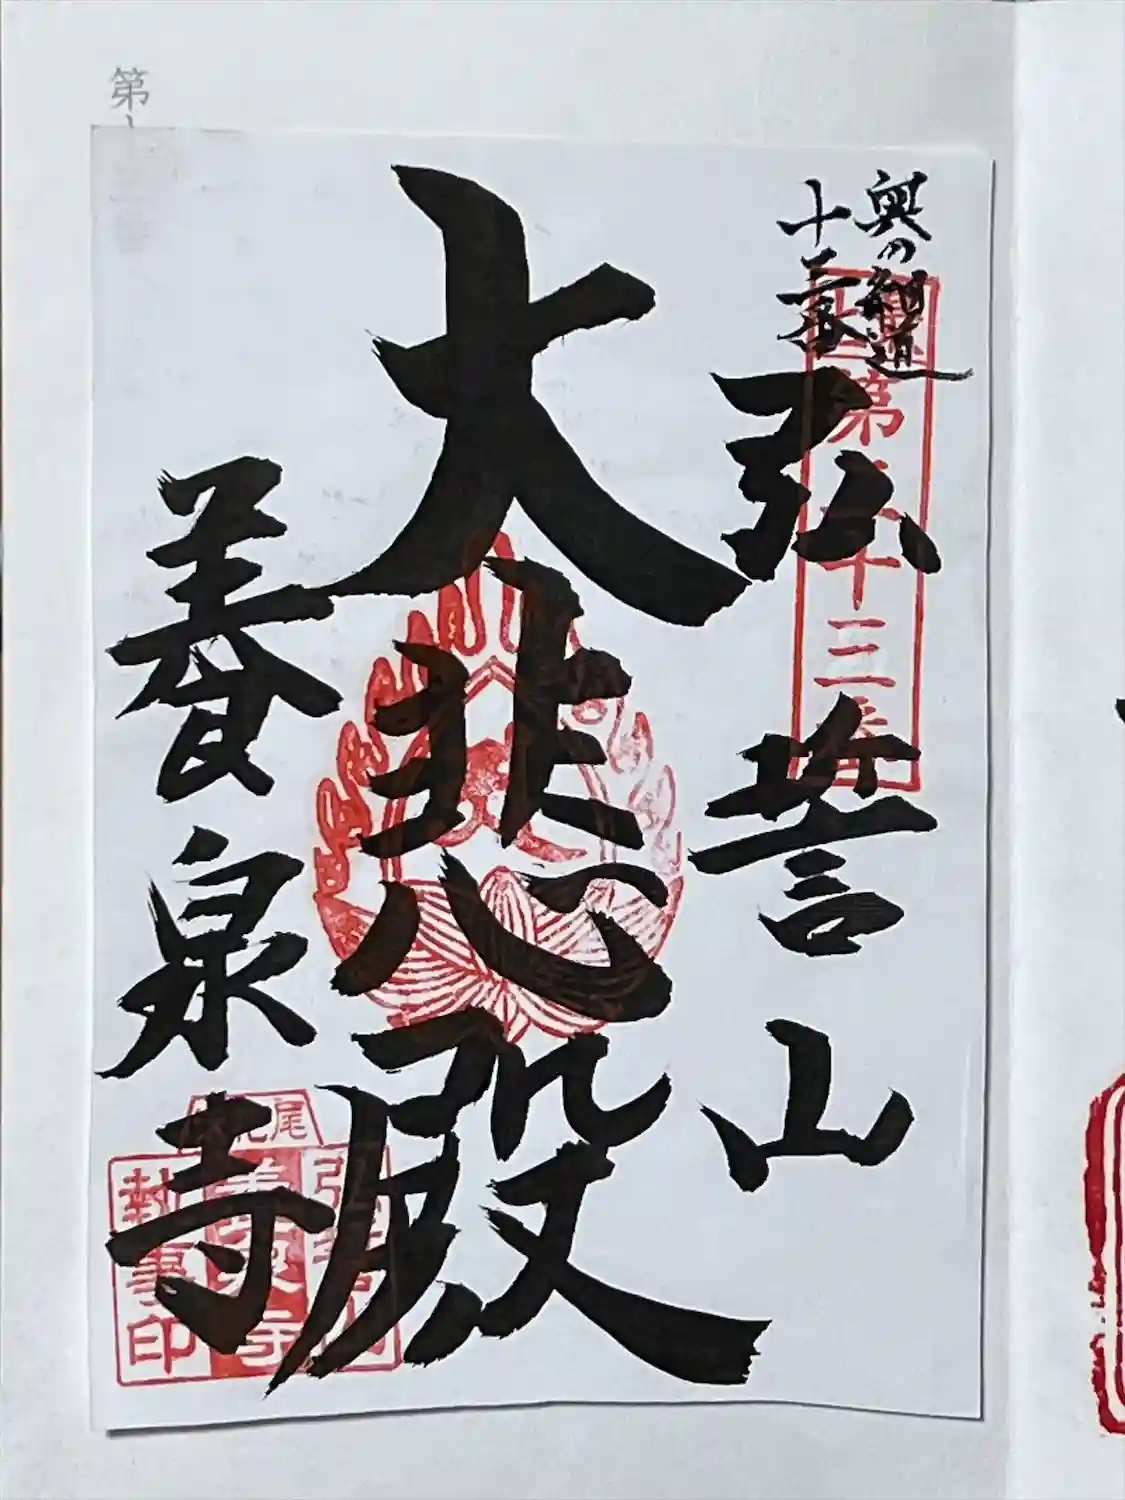 奥の細道
十三番
弘誓山
大悲殿
養泉寺
第十三番
尾花
弘誓山
養泉寺
執事印
第